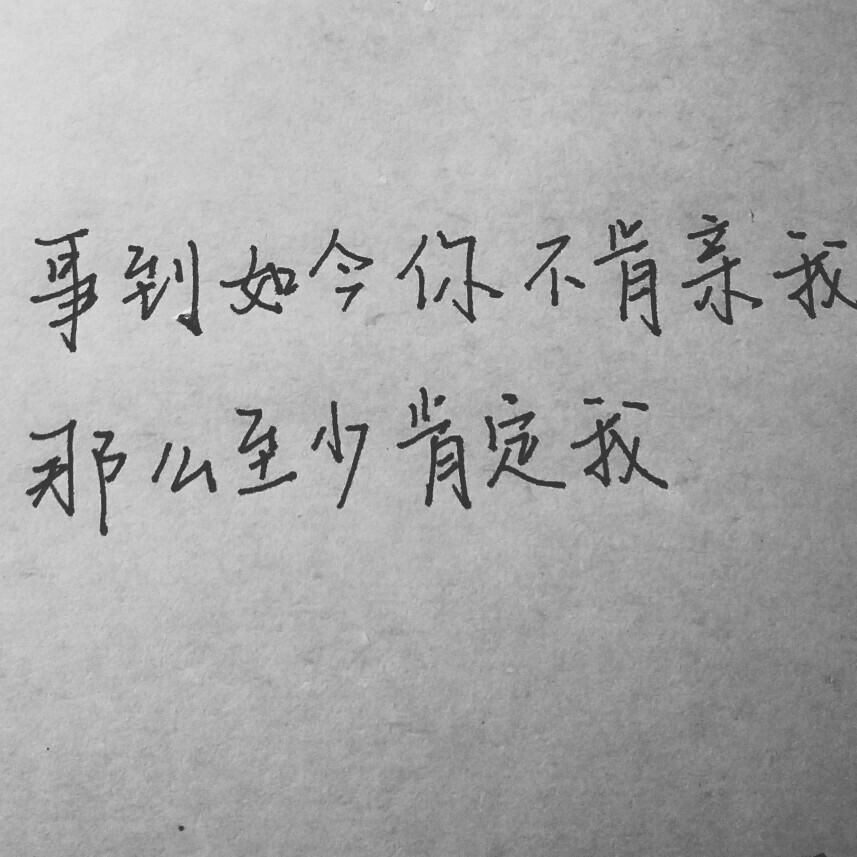 事到如今你不肯亲我
那么至少肯定我